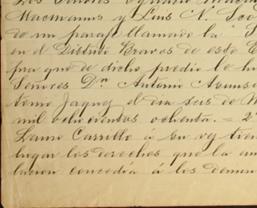 Los Señores
Macmanus y Luis N.
de un parage llamado la
en el Distrito Bravos de este
pra que de dicho predio le
Señores Dn. Antonio Asunso
Jaques el dia seis de
mil ochocientos ochenta. = 2
Lauro Carrillo á su vez
lugar los derechos que la
lacion concedia á los